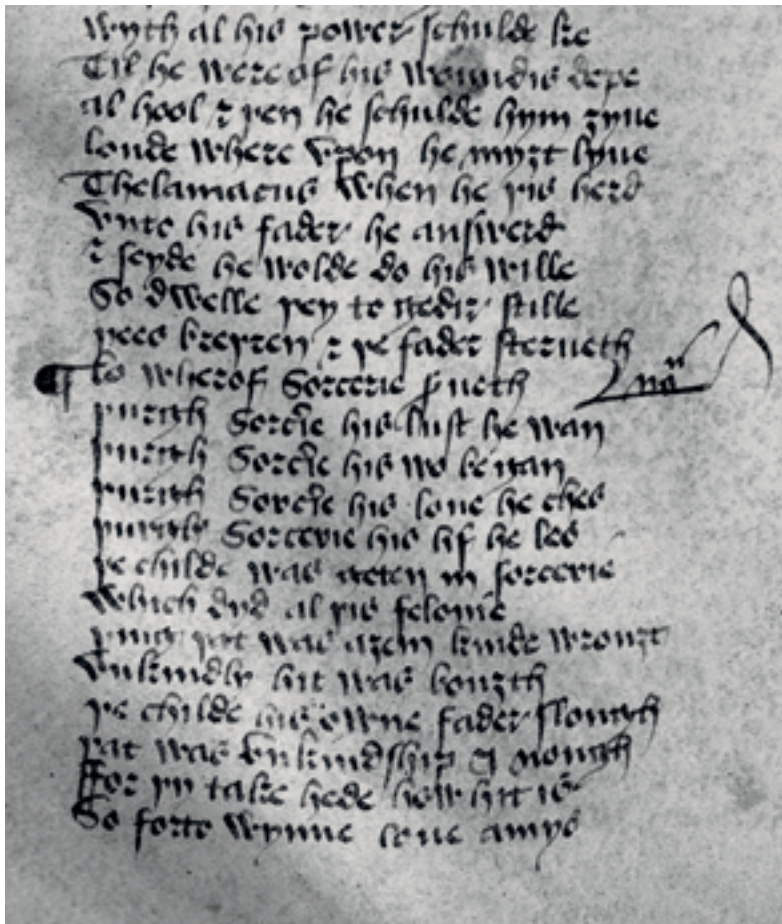 wyth al his power schulde ke
Til he were of his woundis depe
al hool ⁊ þen he schulde hym ȝyue
londe where vpon he myȝt lyue
Thelamacus when he þis herd
vnto his fader he answerd
⁊ seyde he wolde do his wille
So dwelle þey to gedir stille
þees breþren ⁊ þe fader sterueth
lo wherof Sorcerie ꝑueth
þurgh Sorcͥe his lust he wan
þurgh Sorcͥe his wo be gan
þurgh Sorcͥe his loue he ches
þurgh Sorcerie his lif he les
þe childe was geten in sorcerie
which dyd al þis felonie
þing þͭ was aȝein kinde wrouȝt
vnkindly hit was bouȝth
þe childe his owne fader slough
þat was vnkindship I nough
ffor þy take hede how hit is
So forto wynne loue amys